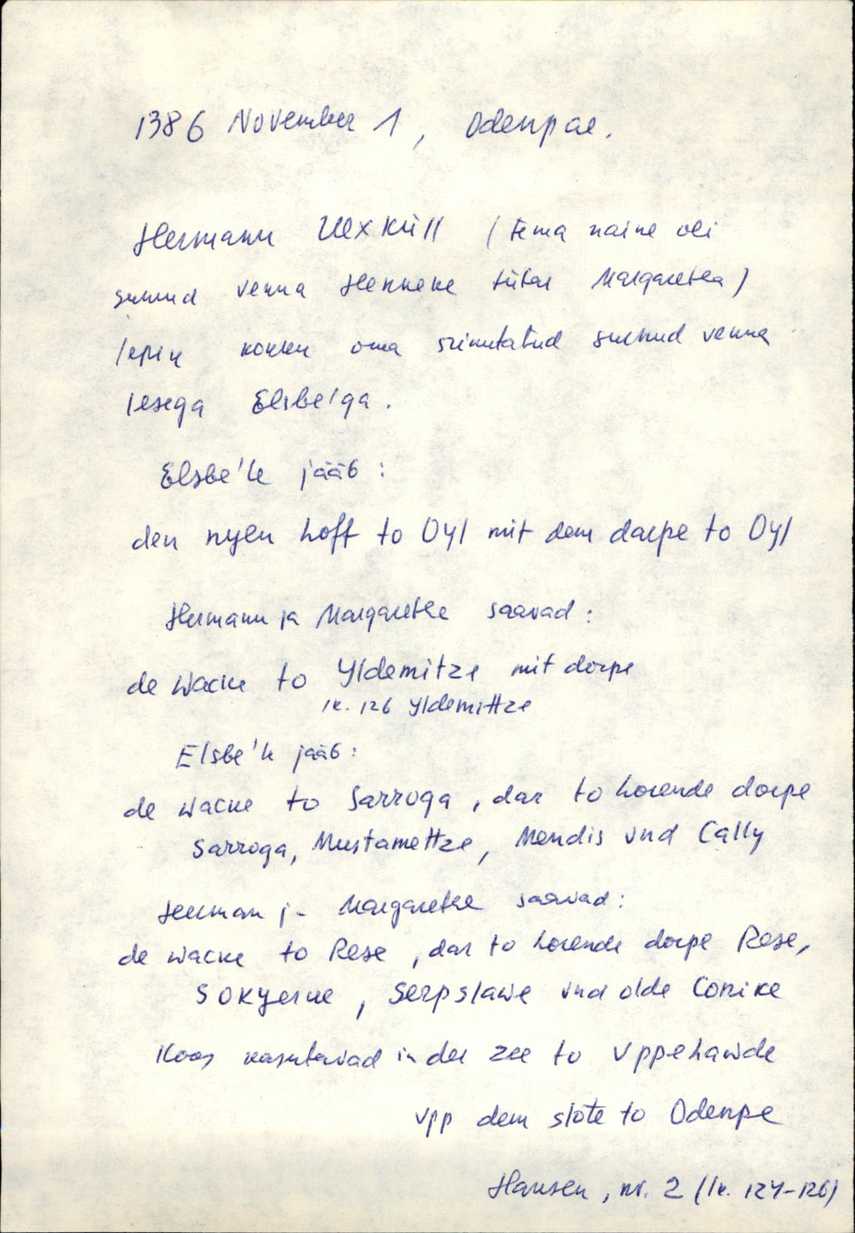 1386 November 1, Odenpae.
Hermann Uexküll (tema naine oli
surnud venna Henneke tütar Margaretha)
lepin kokku oma surnud venna
lesega Elsbe'ga.
Elsbe'le jääb:
den nyen hoff to Oyl mit dem dorpe to Oyl
Hermann ja Margarethe saavad:
de wacke to Yldemitze mit dorpe
lk. 126 Yldemittze
Elsbe'le jääb:
de wacke to Sarroga, dar to horende dorpe
Sarroga, Mustamettze, Mendis vnd Cally
Herman j- Margarethe saavad:
de wacke to Rese, dar to horende dorpe Rese,
Sokyerue, Serpslawe vnd olde Conike
Koos kasutavad in der zee to vppehawde
vpp dem slote to Odenpe
Hansen, nr. 2 (lk. 124-126)